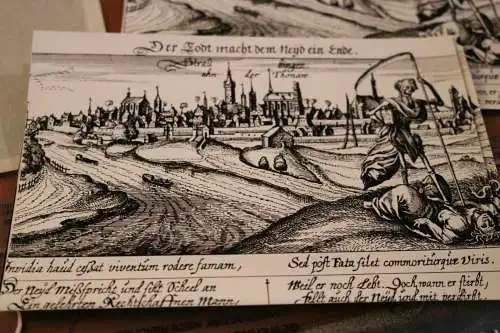 Der Todt macht dem Neyd ein Ende.
Straubinger
ahn der Thonaw
Invidia haud cessat viventum rodere famam,
Sed post Fata silet commoriturque Viris.
Der Neyd Mißspricht und
Ein gelehrten Rechtschaffnen Mann,
Weil er noch Lebt. Doch, wann er stirbt,
fällt auch der Neyd und mit verdirbt.